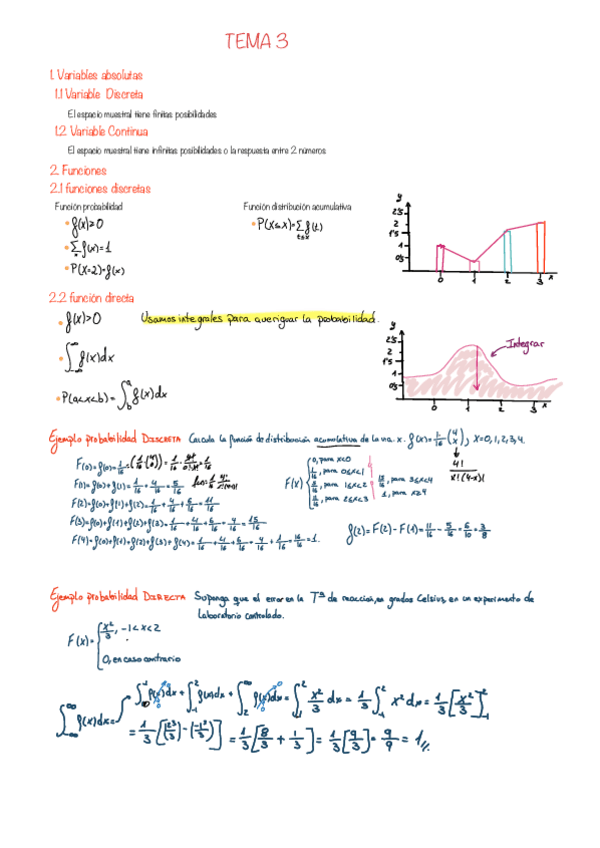 TEMA 3
1. Variables absolutas
1.1 Variable Discreta
El espacio muestral tiene finitas posibilidades
1.2. Variable Continua
El espacio muestral tiene infinitas posibilidades o la respuesta entre 2 números
2. Funciones
2.1 funciones discretas
Función probabilidad
Función distribución acumulativa
f(x)≥0
P(X≤x)=∑ f(t)
t≤x
∑ f(x)=1
x
P(X=2)=f(x)
y
2'5
2
1'5
1
0'5
0 1 2 3 x
2.2 función directa
f(x)>0
Usamos integrales para averiguar la probabilidad.
∫ f(x)dx
P(a<x<b)=∫ f(x)dx
a
b
y
2'5
2
1'5
1
0'5
0 1 2 3 x
Integrar
Ejemplo probabilidad DISCRETA Calcula la función de distribución acumulativa de la v.a. x. f(x)=1/16 (4 x), x=0,1,2,3,4.
4!
x!(4-x)!
F(0)=f(0)=1/16
F(1)=f(0)+f(1)=1/16+4/16=5/16
F(2)=f(0)+f(1)+f(2)=1/16+4/16+6/16=11/16
F(3)=f(0)+f(1)+f(2)+f(3)=1/16+4/16+6/16+4/16=15/16
F(4)=f(0)+f(1)+f(2)+f(3)+f(4)=1/16+4/16+6/16+4/16+1/16=16/16=1.
F(x)
0, para x<0
1/16, para 0≤x<1
5/16, para 1≤x<2
11/16, para 2≤x<3
15/16, para 3≤x<4
1, para x≥4
f(2)=F(2)-F(1)=11/16-5/16=6/16=3/8
Ejemplo probabilidad DIRECTA Suponga que el error en la Tª de reacción, en grados Celsius, en un experimento de
laboratorio controlado.
F(x)=
x²/3, -1<x<2
0, en caso contrario
∫ f(x)dx= ∫ f(x)dx+∫ f(x)dx+∫ f(x)dx=∫ x²/3 dx=1/3 ∫ x² dx=1/3 [x³/3]
=1/3 [(2³/3)-(-1³/3)]=1/3 [8/3+1/3]=1/3 [9/3]=9/9=1//